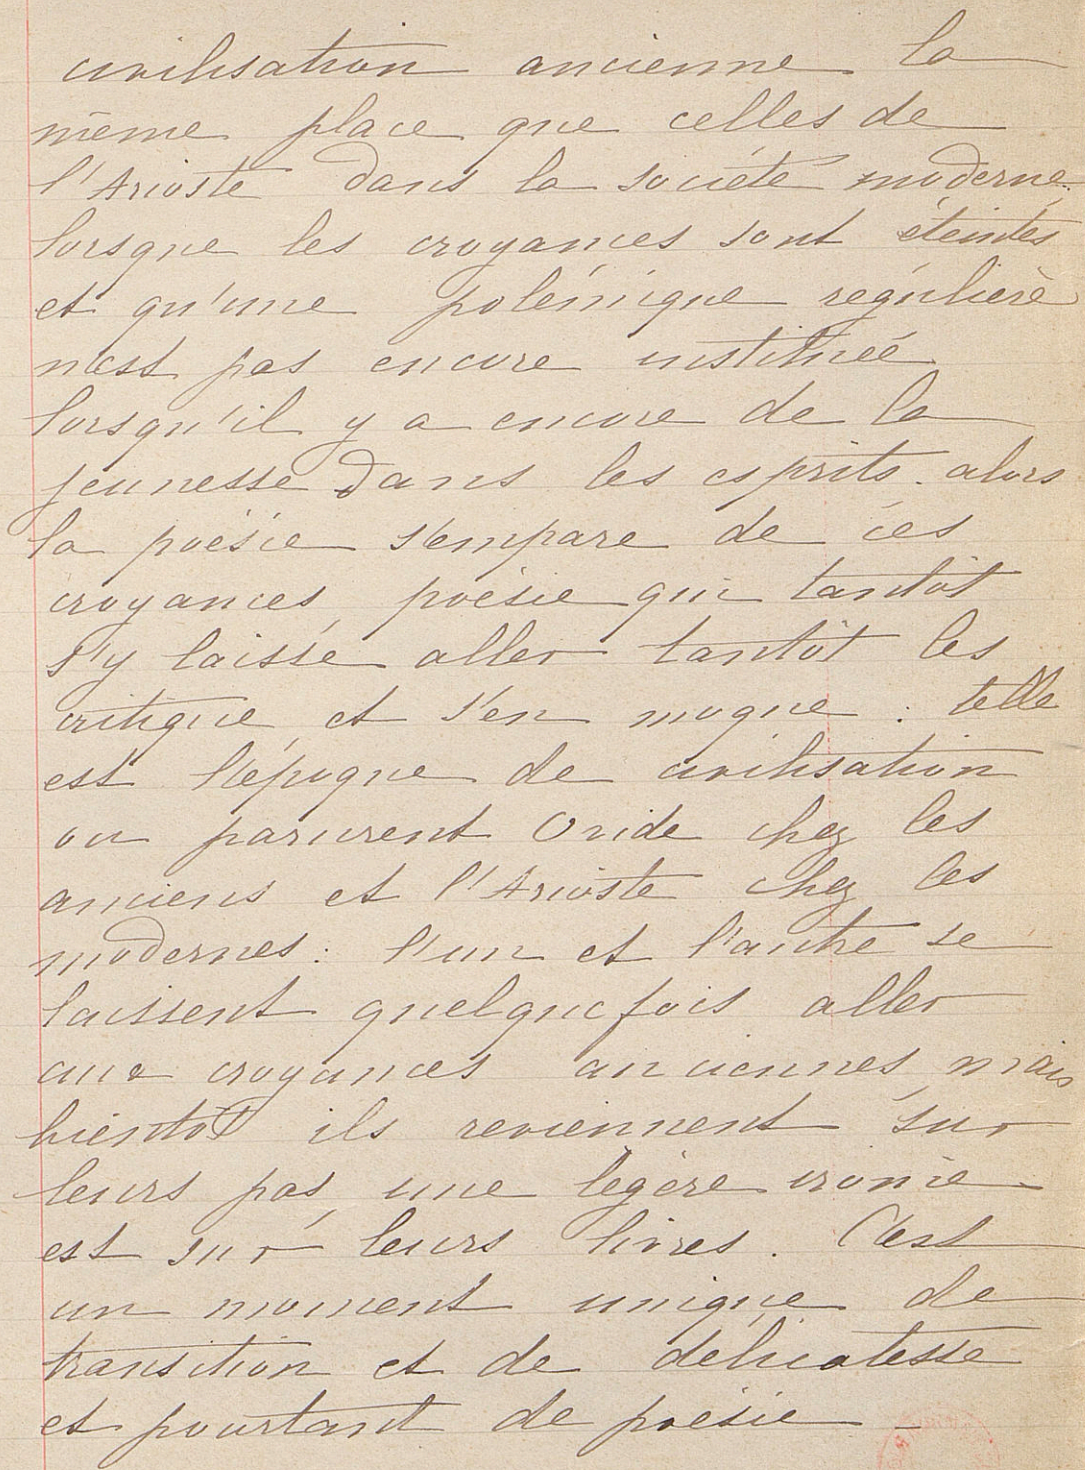 civilisation ancienne la
même place que celles de
l'Arioste dans la société moderne.
lorsque les croyances sont éteintes
et qu'une polémique régulière
n'est pas encore instituée
lorsqu'il y a encore de la
jeunesse dans les esprits. alors
la poésie s'empare de ces
croyances, poésie qui tantôt
s'y laisse aller tantôt les
critique, et s'en moque : telle
est l'époque de civilisation
ou parurent Ovide chez les
anciens et l'Arioste chez les
modernes : l'un et l'autre se
laissent quelquefois aller
aux croyances anciennes, mais
bientôt ils reviennent sur
leurs pas, une légère ironie
est sur leurs livres. C'est
un moment unique de
transition et de délicatesse
et pourtant de poésie